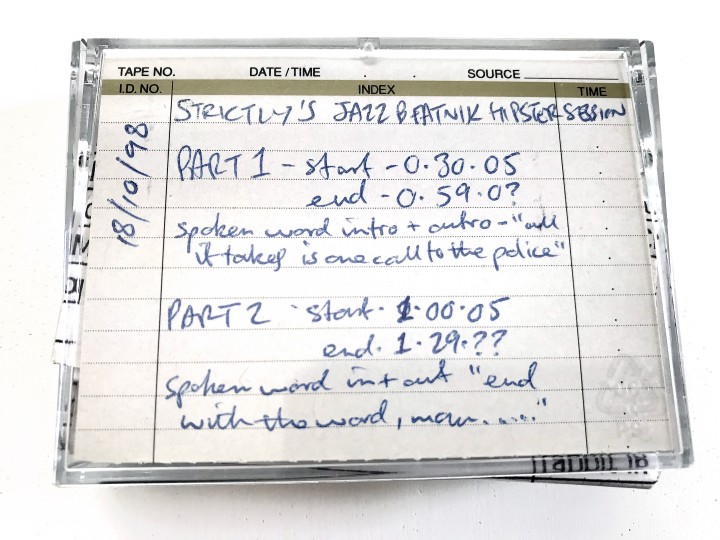 TAPE NO. DATE / TIME . . SOURCE
I.D. NO. INDEX TIME
18/10/98
STRICTLY'S JAZZ BEATNIK HIPSTER SESSION
PART 1 - start - 0.30.05
end - 0.59.0?
spoken word intro + outro - "all
it takes is one call to the police"
PART 2 start. 1.00.05
end. 1.29.??
spoken word in + out "end
with the word, man....."